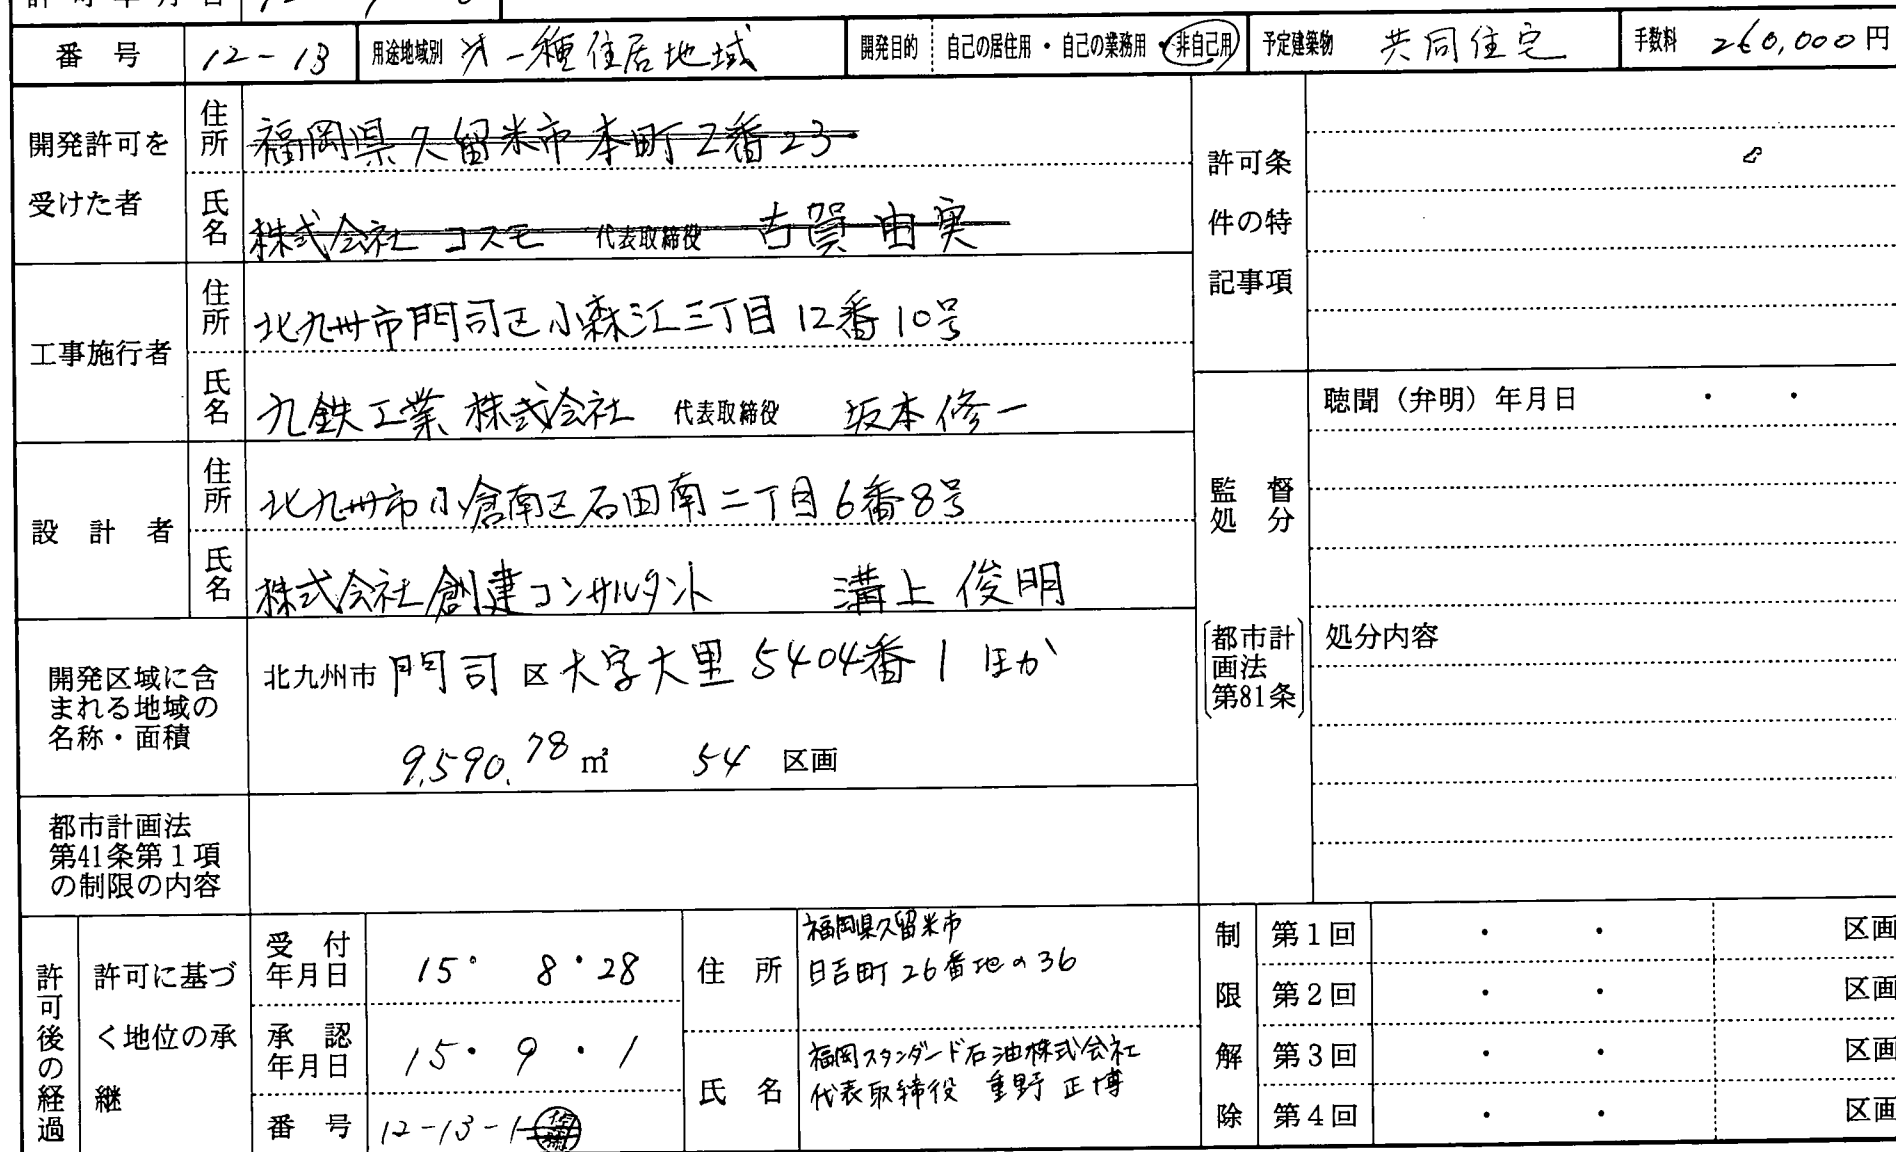 番号 12-13 用途地域別 オ一種住居地域 開発目的 自己の居住用・自己の業務用・非自己用 予定建築物 共同住宅 手数料 260,000円
開発許可を受けた者
住所 福岡県久留米市本町2番23
氏名 株式会社コスモ 代表取締役 古賀由実
許可条件の特記事項
工事施行者
住所 北九州市門司区小森江三丁目12番10号
氏名 九鉄工業株式会社 代表取締役 坂本修一
監督処分
聴聞(弁明)年月日 ・ ・
設計者
住所 北九州市小倉南区石田南二丁目6番8号
氏名 株式会社創建コンサルタント 溝上俊明
開発区域に含
まれる地域の
名称・面積
北九州市門司区大字大里5404番1ほか
9,590.78㎡ 54区画
都市計
画法
第81条
処分内容
都市計画法
第41条第1項
の制限の内容
許可後の経過
許可に基づ
く地位の承
継
受付
年月日 15・8・28
承認
年月日 15・9・1
番号 12-13-1
住所 福岡県久留米市
日吉町26番地の36
氏名 福岡スタンダード石油株式会社
代表取締役 重野正博
制限解除
第1回 ・ ・ 区画
第2回 ・ ・ 区画
第3回 ・ ・ 区画
第4回 ・ ・ 区画